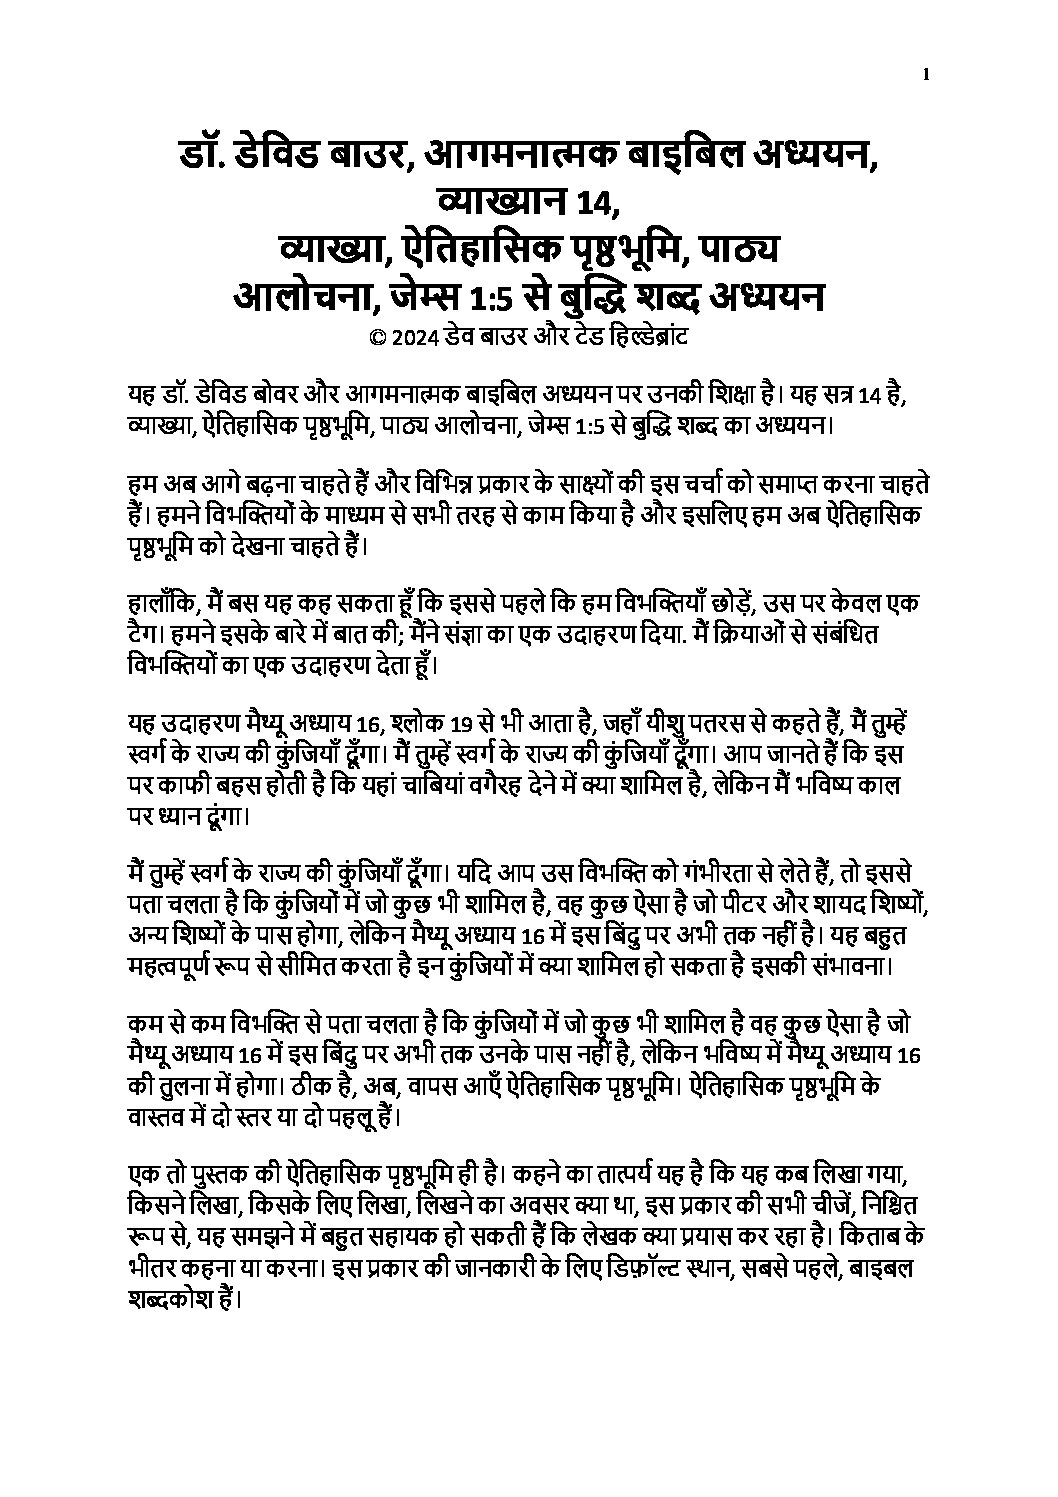 1
डॉ. डेविड बाउर, आगमनात्मक बाइबिल अध्ययन,
व्याख्यान 14,
व्याख्या, ऐतिहासिक पृष्ठभूमि, पाठ्य
आलोचना, जेम्स 1:5 से बुद्धि शब्द अध्ययन
© 2024 डेव बाउर और टेड हिल्डेब्रांट
यह डॉ. डेविड बोवर और आगमनात्मक बाइबिल अध्ययन पर उनकी शिक्षा है। यह सत्र 14 है,
व्याख्या, ऐतिहासिक पृष्ठभूमि, पाठ्य आलोचना, जेम्स 1:5 से बुद्धि शब्द का अध्ययन।
हम अब आगे बढ़ना चाहते हैं और विभिन्न प्रकार के साक्ष्यों की इस चर्चा को समाप्त करना चाहते
हैं। हमने विभक्तियों के माध्यम से सभी तरह से काम किया है और इसलिए हम अब ऐतिहासिक
पृष्ठभूमि को देखना चाहते हैं।
हालाँकि, मैं बस यह कह सकता हूँ कि इससे पहले कि हम विभक्तियाँ छोड़ें, उस पर केवल एक
टैग। हमने इसके बारे में बात की; मैंने संज्ञा का एक उदाहरण दिया. मैं क्रियाओं से संबंधित
विभक्तियों का एक उदाहरण देता हूँ।
यह उदाहरण मैथ्यू अध्याय 16, श्लोक 19 से भी आता है, जहाँ यीशु पतरस से कहते हैं, मैं तुम्हें
स्वर्ग के राज्य की कुंजियाँ दूँगा। मैं तुम्हें स्वर्ग के राज्य की कुंजियाँ दूँगा। आप जानते हैं कि इस
पर काफी बहस होती है कि यहां चाबियां वगैरह देने में क्या शामिल है, लेकिन मैं भविष्य काल
पर ध्यान दूंगा।
मैं तुम्हें स्वर्ग के राज्य की कुंजियाँ दूँगा। यदि आप उस विभक्ति को गंभीरता से लेते हैं, तो इससे
पता चलता है कि कुंजियों में जो कुछ भी शामिल है, वह कुछ ऐसा है जो पीटर और शायद शिष्यों,
अन्य शिष्यों के पास होगा, लेकिन मैथ्यू अध्याय 16 में इस बिंदु पर अभी तक नहीं है। यह बहुत
महत्वपूर्ण रूप से सीमित करता है इन कुंजियों में क्या शामिल हो सकता है इसकी संभावना।
कम से कम विभक्ति से पता चलता है कि कुंजियों में जो कुछ भी शामिल है वह कुछ ऐसा है जो
मैथ्यू अध्याय 16 में इस बिंदु पर अभी तक उनके पास नहीं है, लेकिन भविष्य में मैथ्यू अध्याय 16
की तुलना में होगा। ठीक है, अब, वापस आएँ ऐतिहासिक पृष्ठभूमि। ऐतिहासिक पृष्ठभूमि के
वास्तव में दो स्तर या दो पहलू हैं।
एक तो पुस्तक की ऐतिहासिक पृष्ठभूमि ही है। कहने का तात्पर्य यह है कि यह कब लिखा गया,
किसने लिखा, किसके लिए लिखा, लिखने का अवसर क्या था, इस प्रकार की सभी चीजें, निश्चित
रूप से, यह समझने में बहुत सहायक हो सकती हैं कि लेखक क्या प्रयास कर रहा है। किताब के
भीतर कहना या करना। इस प्रकार की जानकारी के लिए डिफ़ॉल्ट स्थान, सबसे पहले, बाइबल
शब्दकोश हैं।